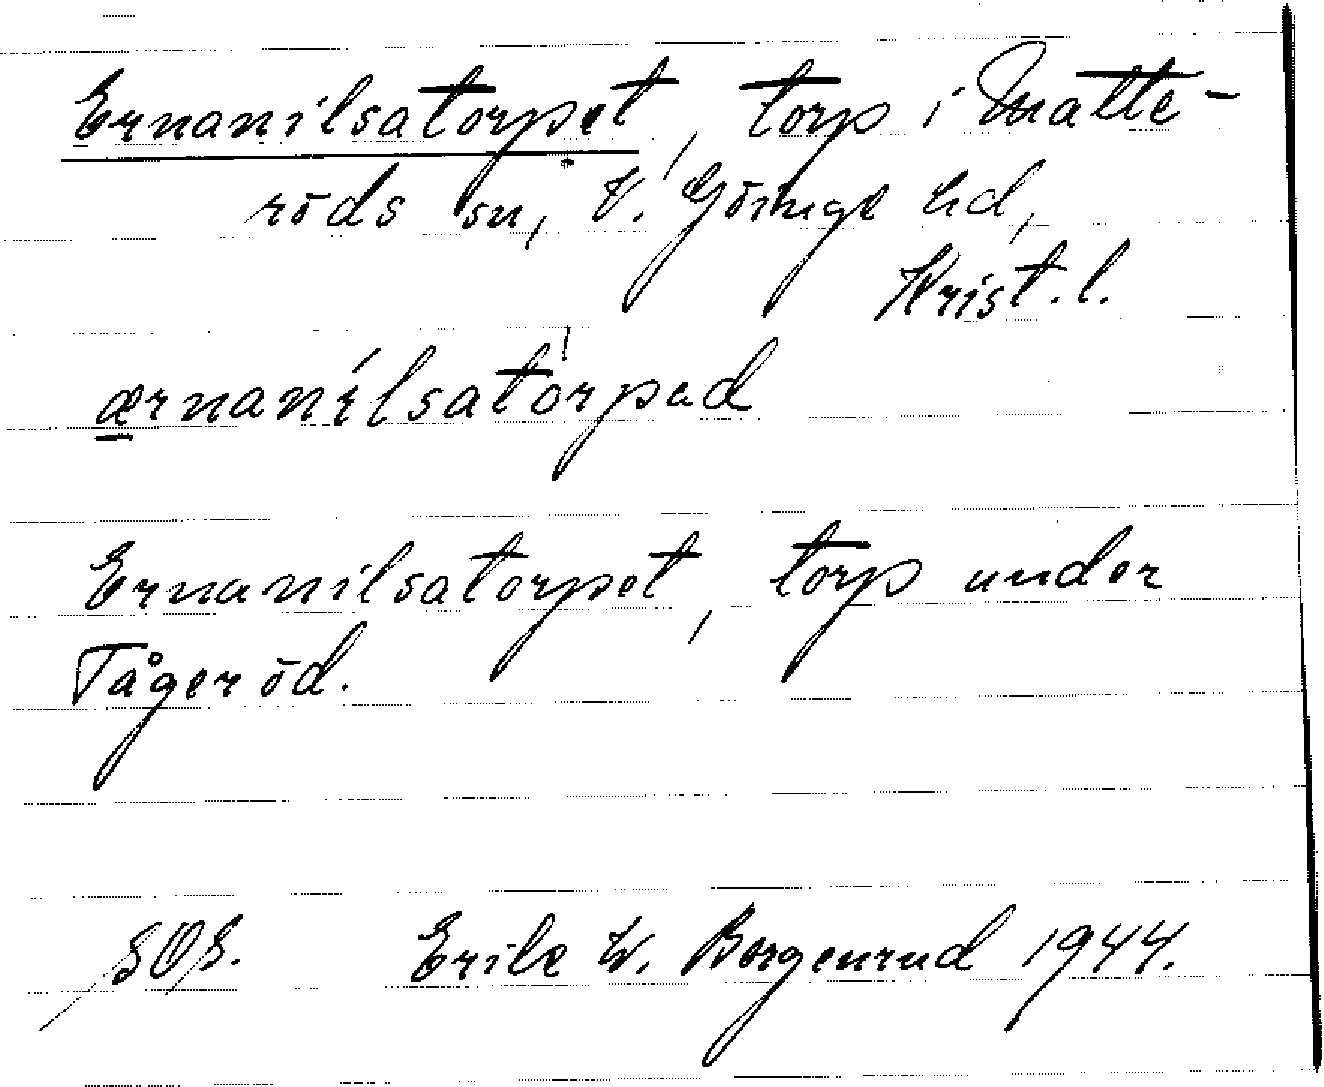 Ernanilsatorpet, torp i Matte-
röds sn, V. Göinge hd,
Krist. l.
ærnanilsatorpad
Ernanilsatorpet, torp under
Tågeröd.
SOS. Erik W. Borgenrud 1944.